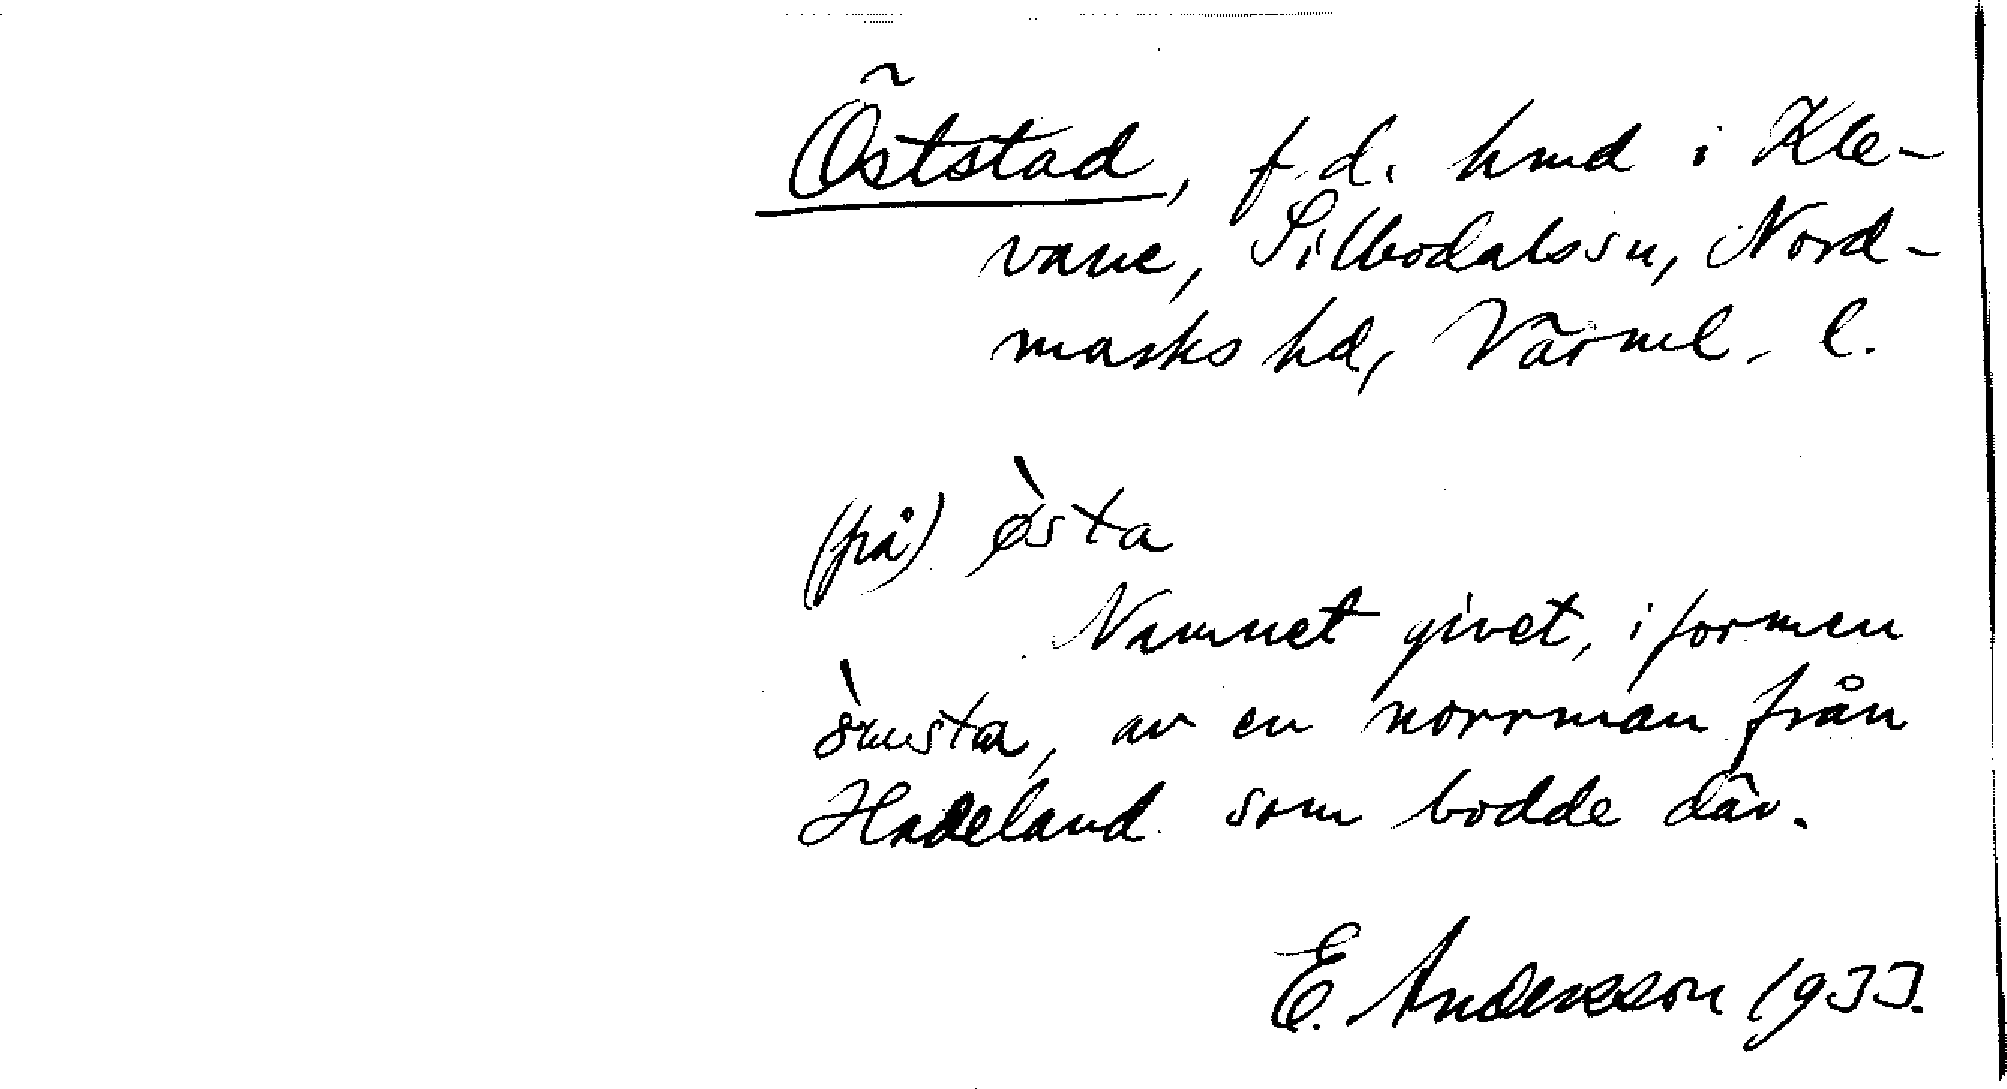 Öststad, f.d. hmd i Kle-
vane, Silbodalssn, Nord-
marks hd, Värml. l.
(på) ø̀sta
Namnet givet, i formen
av en norrman från
Hadeland som bodde där.
E. Andersson 1933.